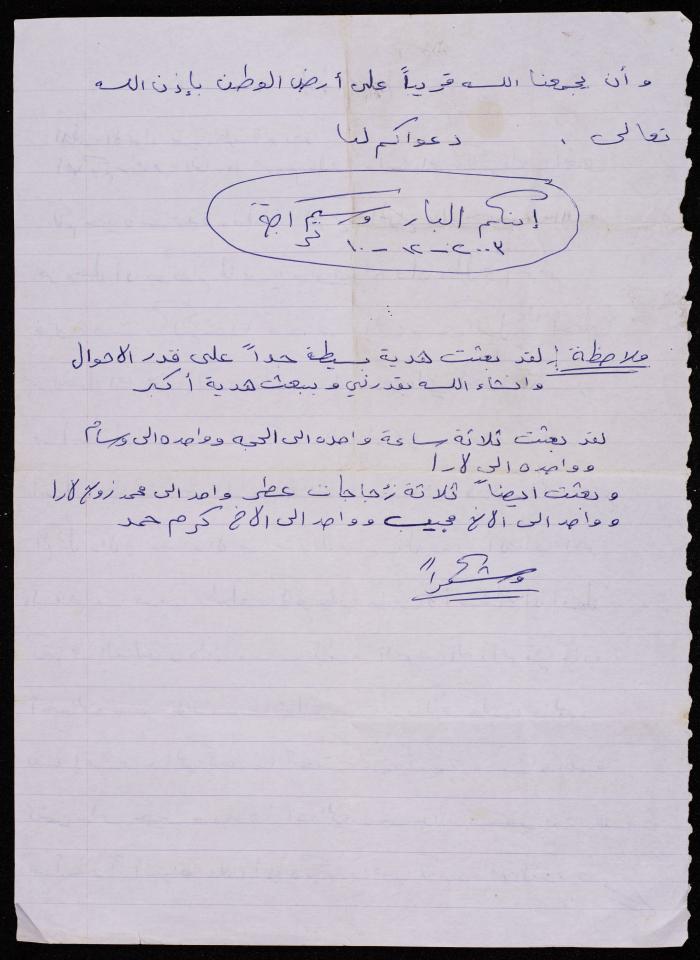 و أن يجمعنا الله قريباً على أرض الوطن بإذن الله
تعالى . دعواكم لنا
إبنكم البار وسيم
١٠-١٢-٢٠٠٣
ملاحظة :- لقد بعثت هدية بسيطة جداً على قدر الاحوال
وانشاء الله بقدرني وببعث هدية أكبر
لقد بعثت ثلاثة ساعة واحده الى الحجه وواحده الى وسام
وواحده الى لارا
وبعثت ايضاً ثلاثة زجاجات عطر واحد الى محمد زوج لارا
وواحد الى الاخ مجيب وواحد الى الاخ كرم حمد
وشكراً